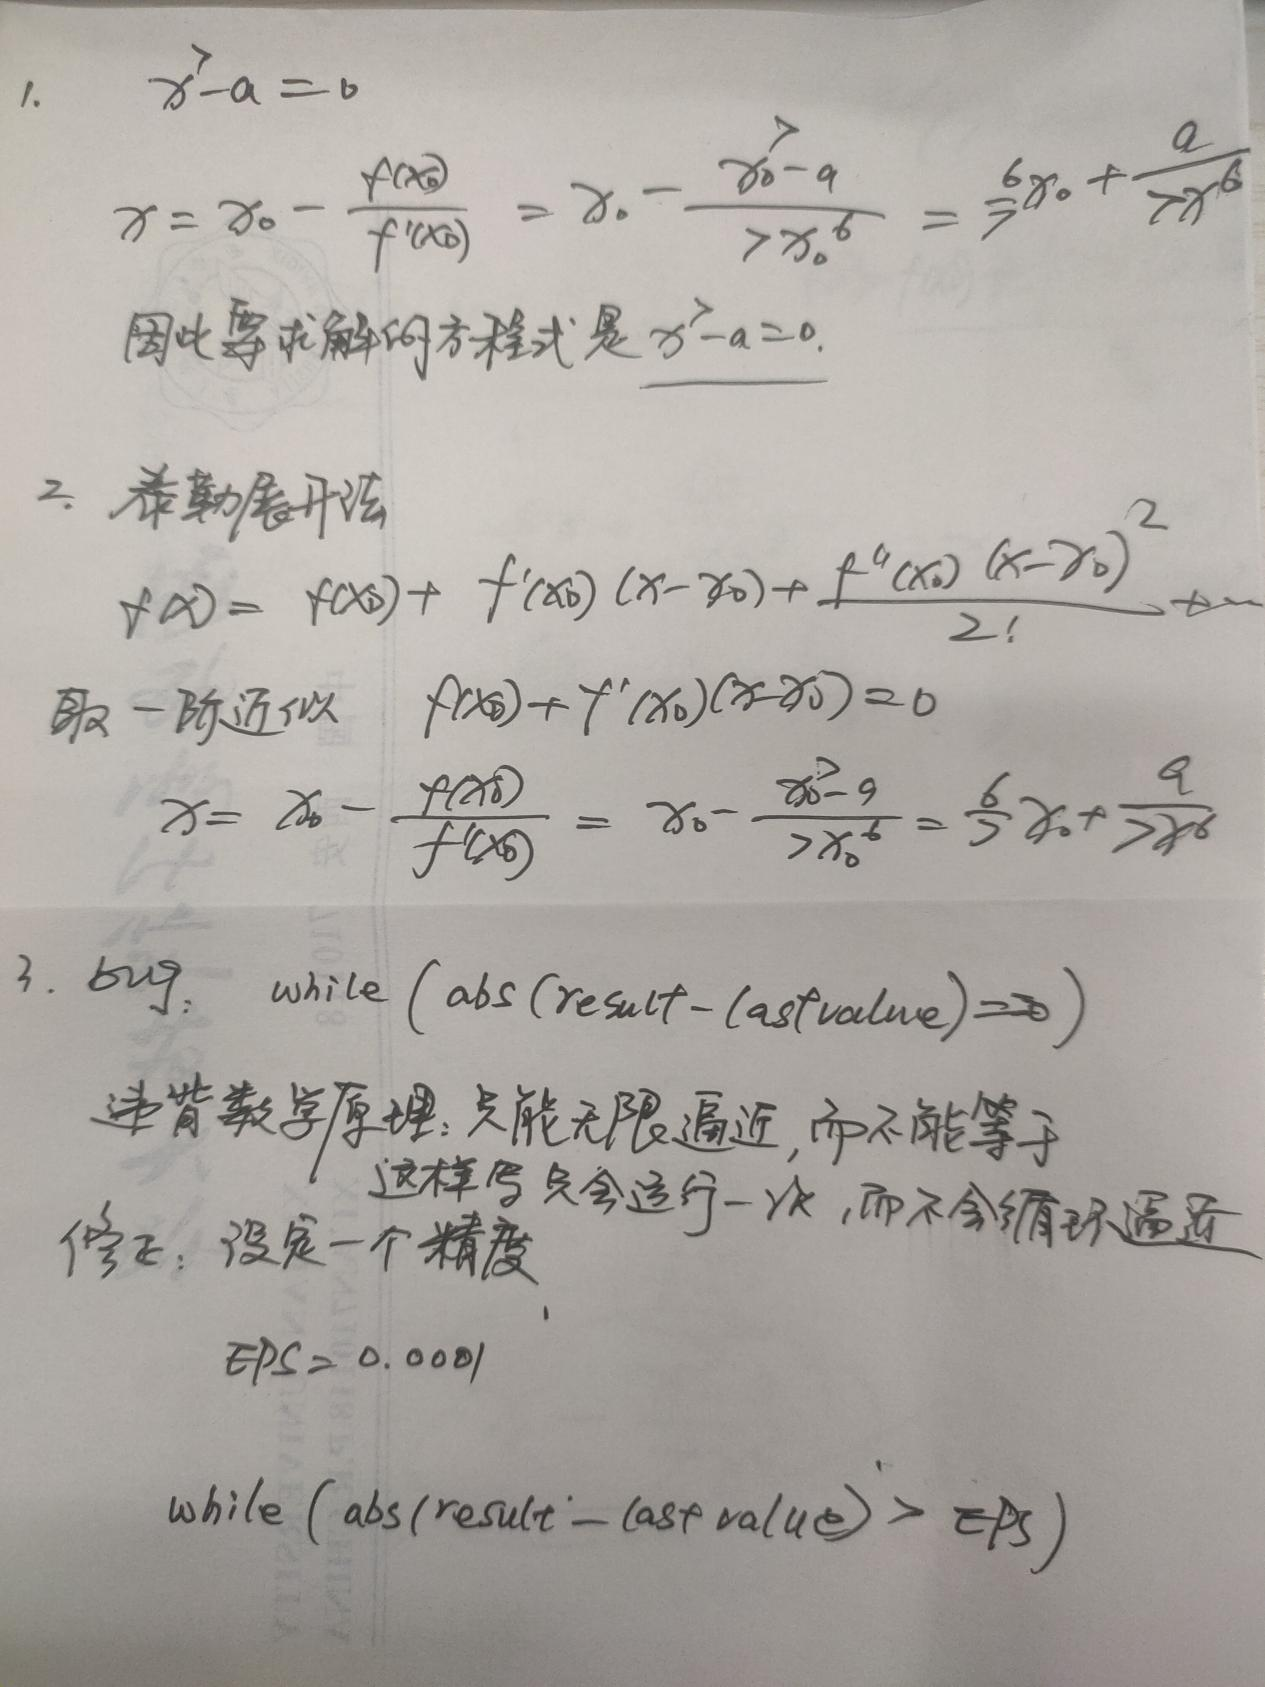 1. x⁷-a=0
x = x₀ - f(x₀)/f'(x₀) = x₀ - (x₀⁷-a)/(7x₀⁶) = 6/7 x₀ + a/(7x⁶)
因此要求解的方程式是 x⁷-a=0.
2. 泰勒展开法
f(x) = f(x₀) + f'(x₀)(x-x₀) + f''(x₀)(x-x₀)²/2! + …
取一阶近似 f(x₀)+f'(x₀)(x-x₀)=0
x = x₀ - f(x₀)/f'(x₀) = x₀ - (x₀⁷-a)/(7x₀⁶) = 6/7 x₀ + a/(7x⁶)
3. bug: while(abs(result-lastvalue)==0)
违背数学原理:只能无限逼近,而不能等于
这样写只会运行一次,而不会循环逼近
修正:设定一个精度
EPS=0.0001
while(abs(result-lastvalue)>EPS)